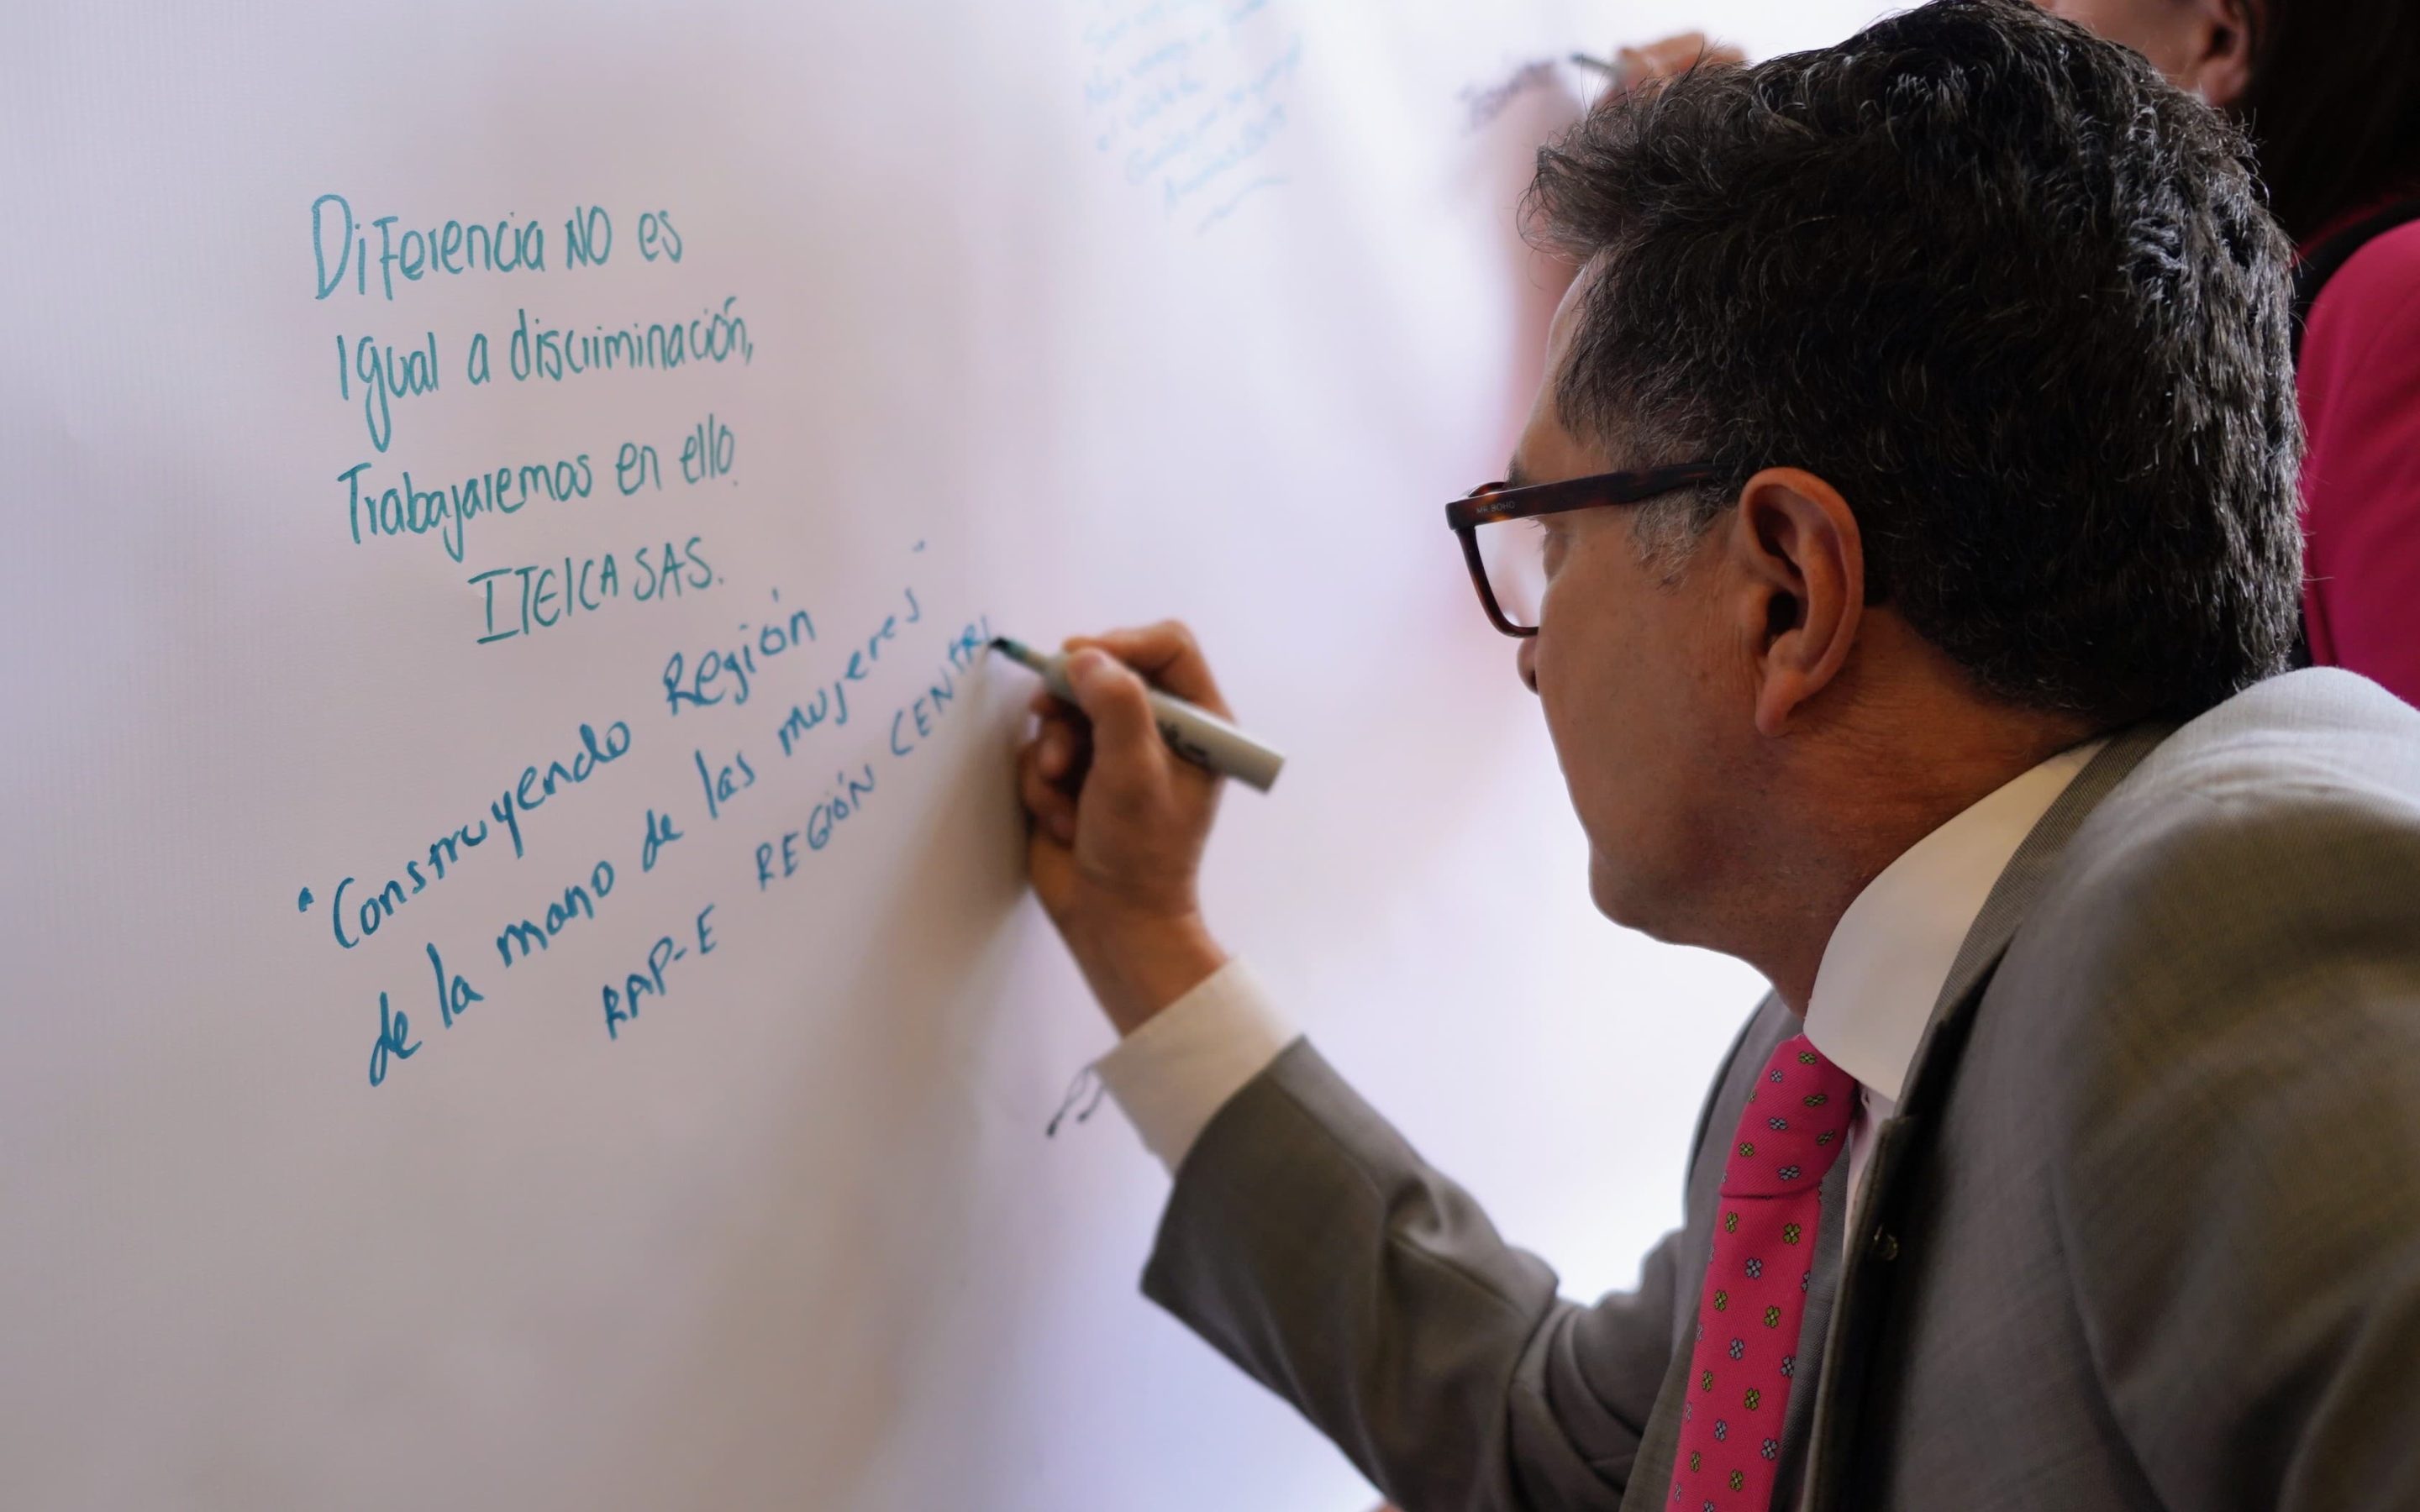 Diferencia NO es
Igual a discriminación,
Trabajaremos en ello.
ITELCA SAS.
"Construyendo Región
de la mano de las mujeres"
RAP-E REGIÓN CENTR
MR. BOHO